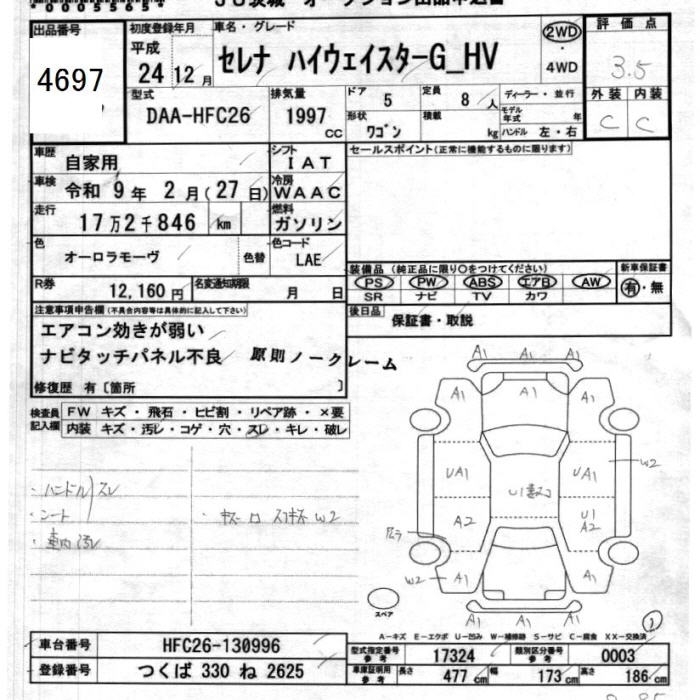 出品番号
4697
初度登録年月
平成
24 12月
車名・グレード
セレナ ハイウェイスターG_HV
2WD
・
4WD
評価点
3.5
外装 内装
C C
型式
DAA-HFC26
排気量
1997 CC
ドア 5
定員 8 人
形状 ワゴン
積載 kg
ディーラー・並行
モデル年式 年
ハンドル 左・右
車歴 自家用
シフト IAT
セールスポイント(正常に機能するものに限ります)
車検 令和 9年 2月(27日)
冷房 WAAC
走行 17万2千846 km
燃料 ガソリン
色 オーロラモーヴ 色替
色コード LAE
装備品(純正品に限り○をつけてください)
PS PW ABS エアB AW
SR ナビ TV カワ
新車保証書
有・無
R券 12,160円
名変通知期限 月 日
後日品 保証書・取説
注意事項申告欄(不具合内容等は具体的に記入して下さい)
エアコン効きが弱い
ナビタッチパネル不良 原則ノークレーム
修復歴 有〔箇所 〕
検査員記入欄
FW キズ・飛石・ヒビ割・リペア跡・×要
内装 キズ・汚レ・コゲ・穴・スレ・キレ・破レ
・ハンドル スレ
・シート
・車内汚レ
W2
A1 A1
A1 A1 A1
UA1 UA1 W2
U1
A2 U1
A2
W2 A1 A1 A1
A1 A1
スペア
A-キズ E-エクボ U-凹み W-補修跡 S-サビ C-腐食 XX-交換済
車台番号 HFC26-130996
登録番号 つくば 330 ね 2625
型式指定番号 参考 17324
類別区分番号 参考 0003
車庫証明用 参考 長さ 477 cm 幅 173 cm 高さ 186 cm